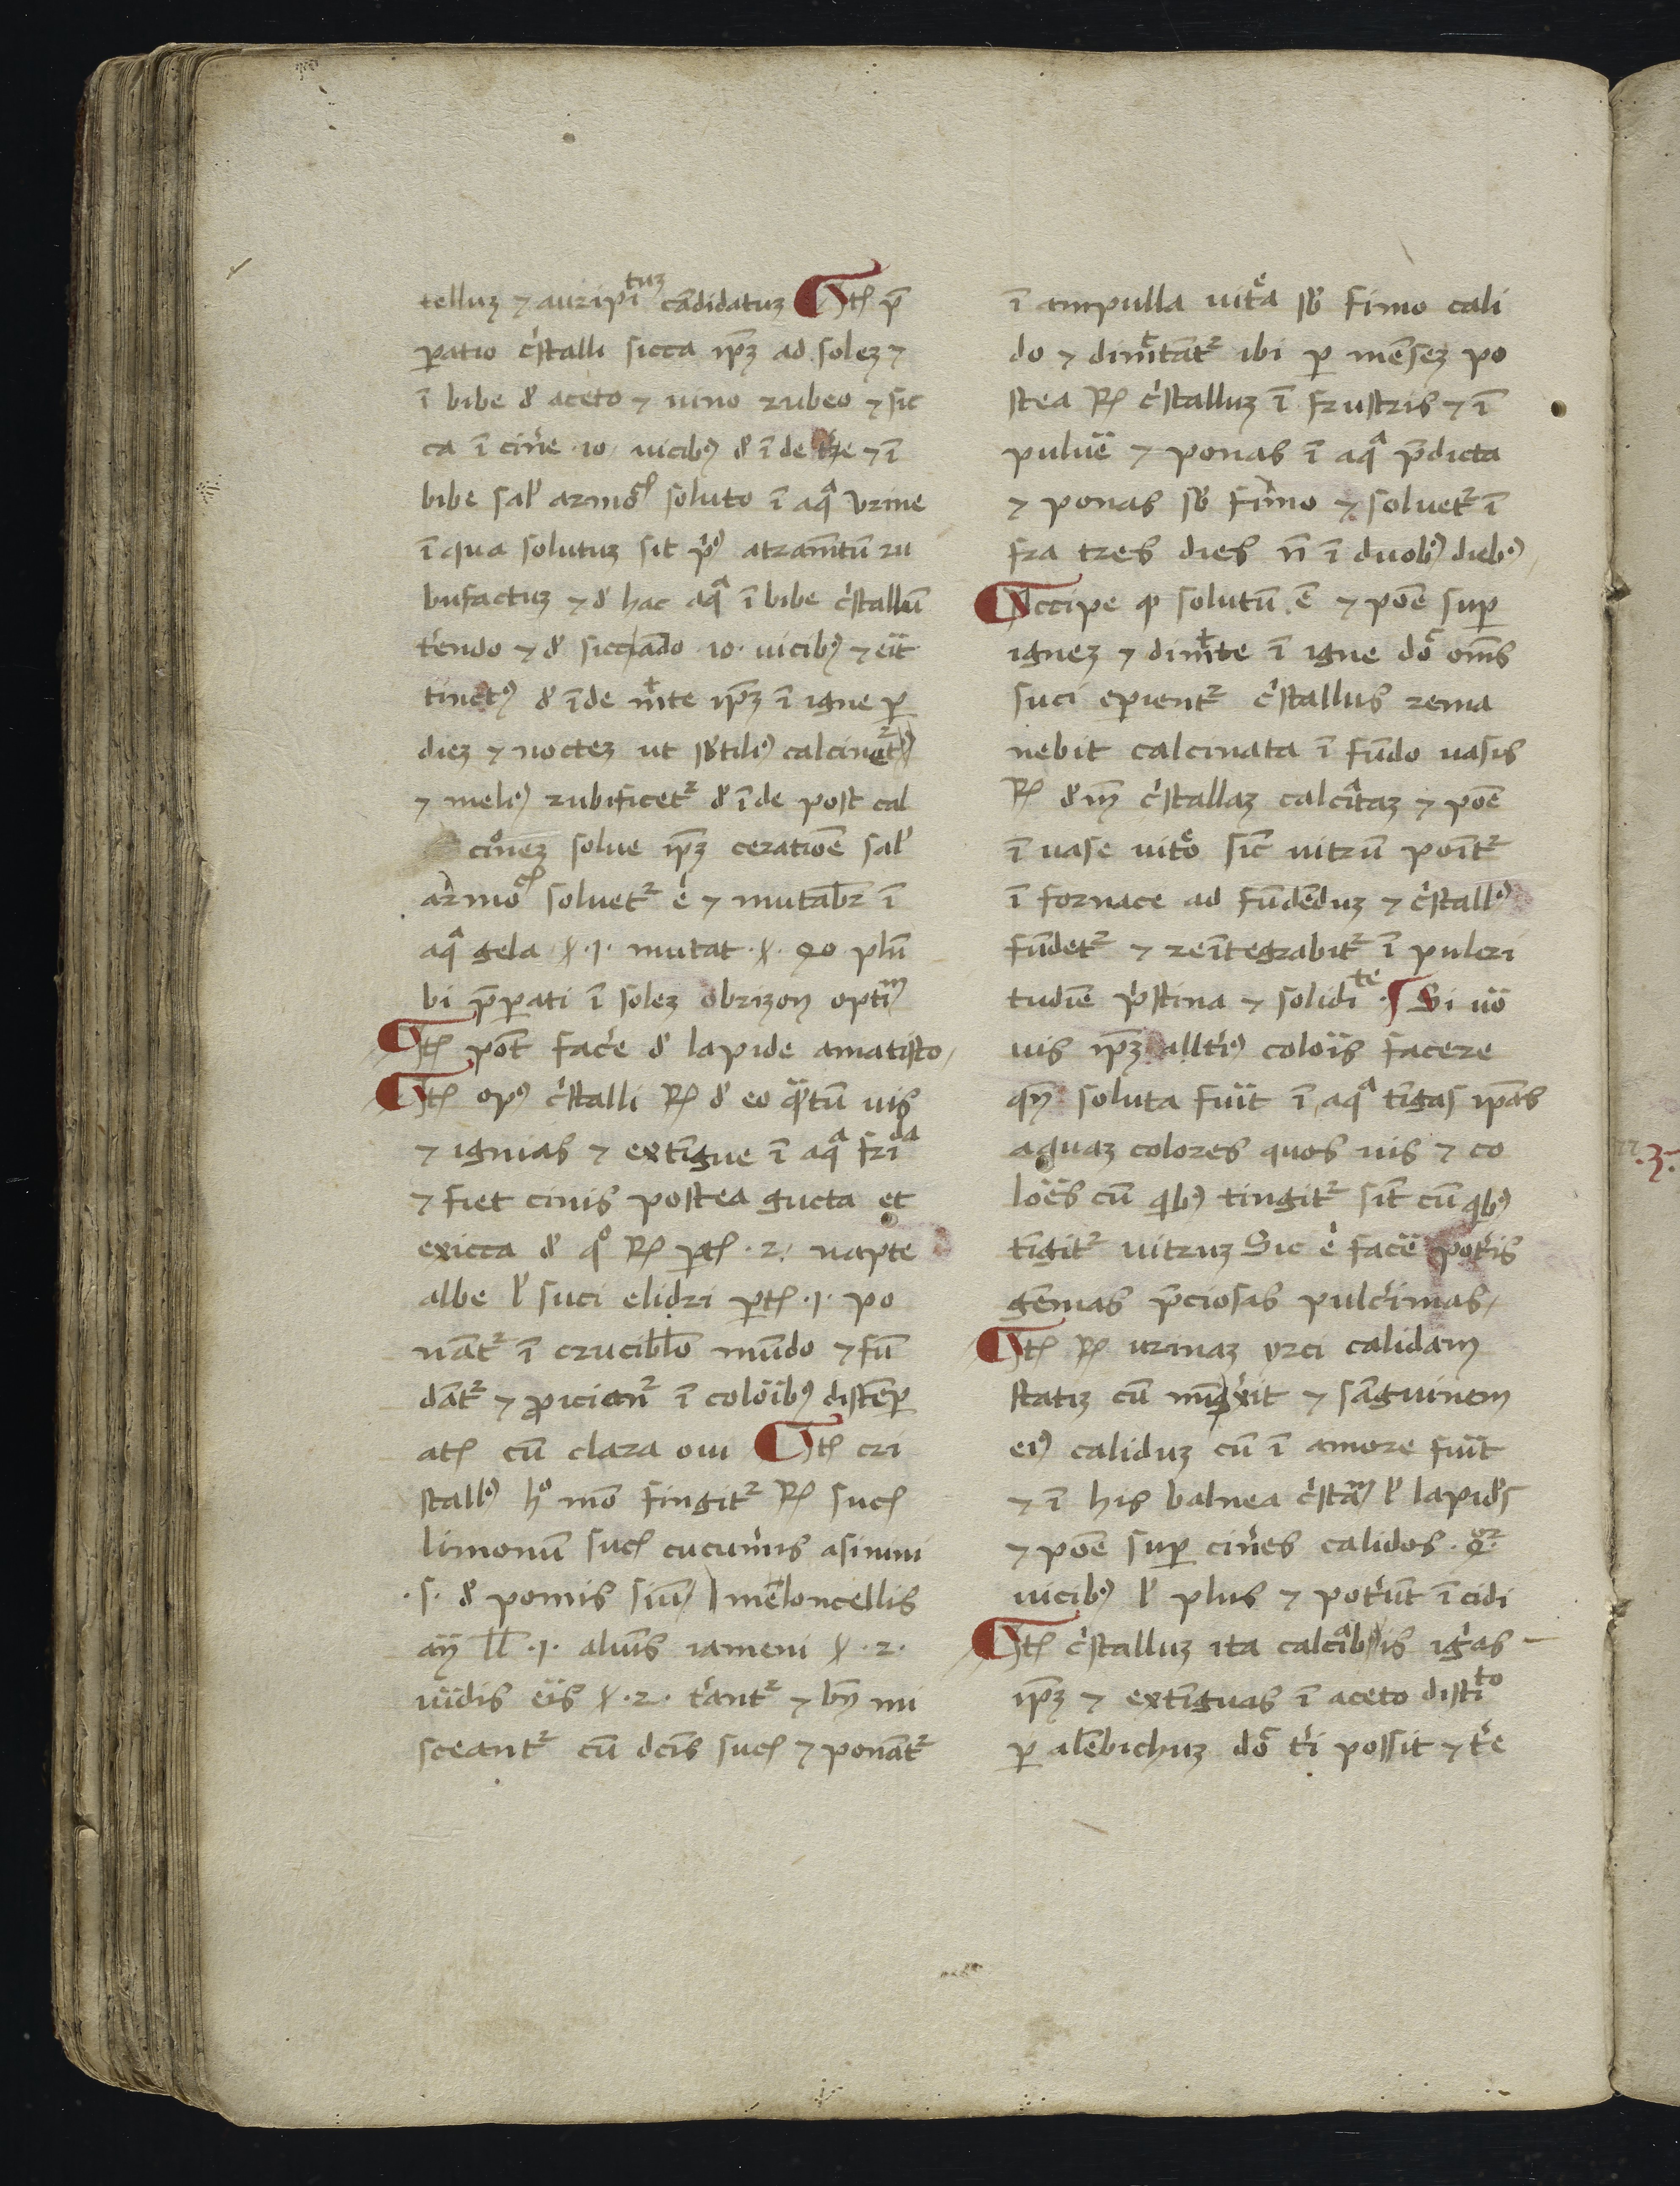 telluz ⁊ auripituz cādidatuz ¶ Itē p̄
patio c̓stalli sicca ip̄z ad solez ⁊
ī bibe d̓ aceto ⁊ uino rubeo ⁊ sic
ca ī cin̄e .10. uicibꝰ d̓ īde ⁊ ī
bibe sal̓ armō soluto ī aqͣ urine
ī qua solutuz sit p̓ꝰ atram̄tū ru
bufactuz ⁊ d̓ hac aqͣ ī bibe c̓stallū
t̓endo ⁊ d̓ siccando .10. uicibꝰ ⁊ eīt
tinctꝰ d̓ īde mͭte ip̄z ī igne ꝑ
diez ⁊ noctez ut sb̓tiliꝰ calcinet
⁊ meliꝰ rubificetᷣ d̓ īde post cal
cōnez solue ip̄z ceratiōe sal̓
armō soluetᷣ e̓ ⁊ mutabr̄ ī
aqͣ gela .1. mutat . 20 plū
bi p̄pati ī solez obrizon optīꝫ
¶ Itē pōt fac̓e d̓ lapide amatisto,
¶ Itē opꝰ c̓stalli R̄ d̓ eo qͣtū uis
⁊ ignias ⁊ extīgue ī aqͣ fridͣa
⁊ fiet cinis postea gucta et
exicca d̓ qͦ R̄ ꝑtē .2. napte
albe l̓ suci elidri ꝑtē .1. po
nātᷣ ī crucibl̄o mūdo ⁊ fū
dātᷣ ⁊ ꝓiciānᷣ ī coloībꝰ distēꝑ
atē cū clara oui ¶ Itē cri
stallꝰ hͦ mō fingitᷣ R̄ sucē
limonū sucē cucum̓is asinini
.s. d̓ pomis siuꝫ mēloncellis
an̄ ll̄ .1. alum̄s iameni .2.
uīdis eīs .2. t̓antᷣ ⁊ bn̄ mi
sceantᷣ cū dc̄is sucē ⁊ ponātᷣ
ī ampulla uitͤa sb̓ fimo cali
do ⁊ dimͭtātᷣ ibi ꝑ mēsez po
stea R̄ c̓stalluz ī frustris ⁊ ī
puluē ⁊ ponas ī aqͣ p̄dicta
⁊ ponas sb̓ fimo ⁊ soluetᷣ ī
fra tres dies n̄ ī duobꝰ diebꝰ
¶ Accipe ꝙ solutū ē ⁊ pōe suꝑ
ignez ⁊ dimͭte ī igne dōͨ om̄s
suci eꝑientᷣ c̓stallus rema
nebit calcinata ī fūdo uasis
R̄ d̓m̄ c̓stallaz calcīataz ⁊ pōe
ī uase uitͤo sīc uitrū pōitᷣ
ī fornace ad fūdēduz ⁊ c̓stallꝰ
fūdetᷣ ⁊ reītegrabitᷣ ī pulcri
tudīe p̓stina ⁊ soliditͤe. ¶ Si uō
uis ip̄z allt̓iꝰ coloīs facere
qn̄ soluta fuīt ī aqͣ tīgas ip̄as
aquaz colores quos uis ⁊ co
loēs cū qibꝰ tingitᷣ sīt cū qibꝰ
tīgitᷣ uitruz Sic e̓ facē pot̓is
gēmas p̄ciosas pulc̓imas,
¶ Itē R̄ urinaz yrci calidam
statiz cū mīxit ⁊ sāguinem
eiꝰ caliduz cū ī amore fuīt
⁊ ī his balnea c̓stāꝫ l̓ lapid̓s
⁊ pōe suꝑ cin̓es calidos .4ᵒʳ.
uicibꝰ l̓ plus ⁊ pot̓ūt ī cidi
¶ Itē c̓stalluz ita calcīabis ig̓as
ip̄z ⁊ extīguas ī aceto distitͦo
ꝑ alēbichuz dōͨ t̓i possit ⁊ t̓e